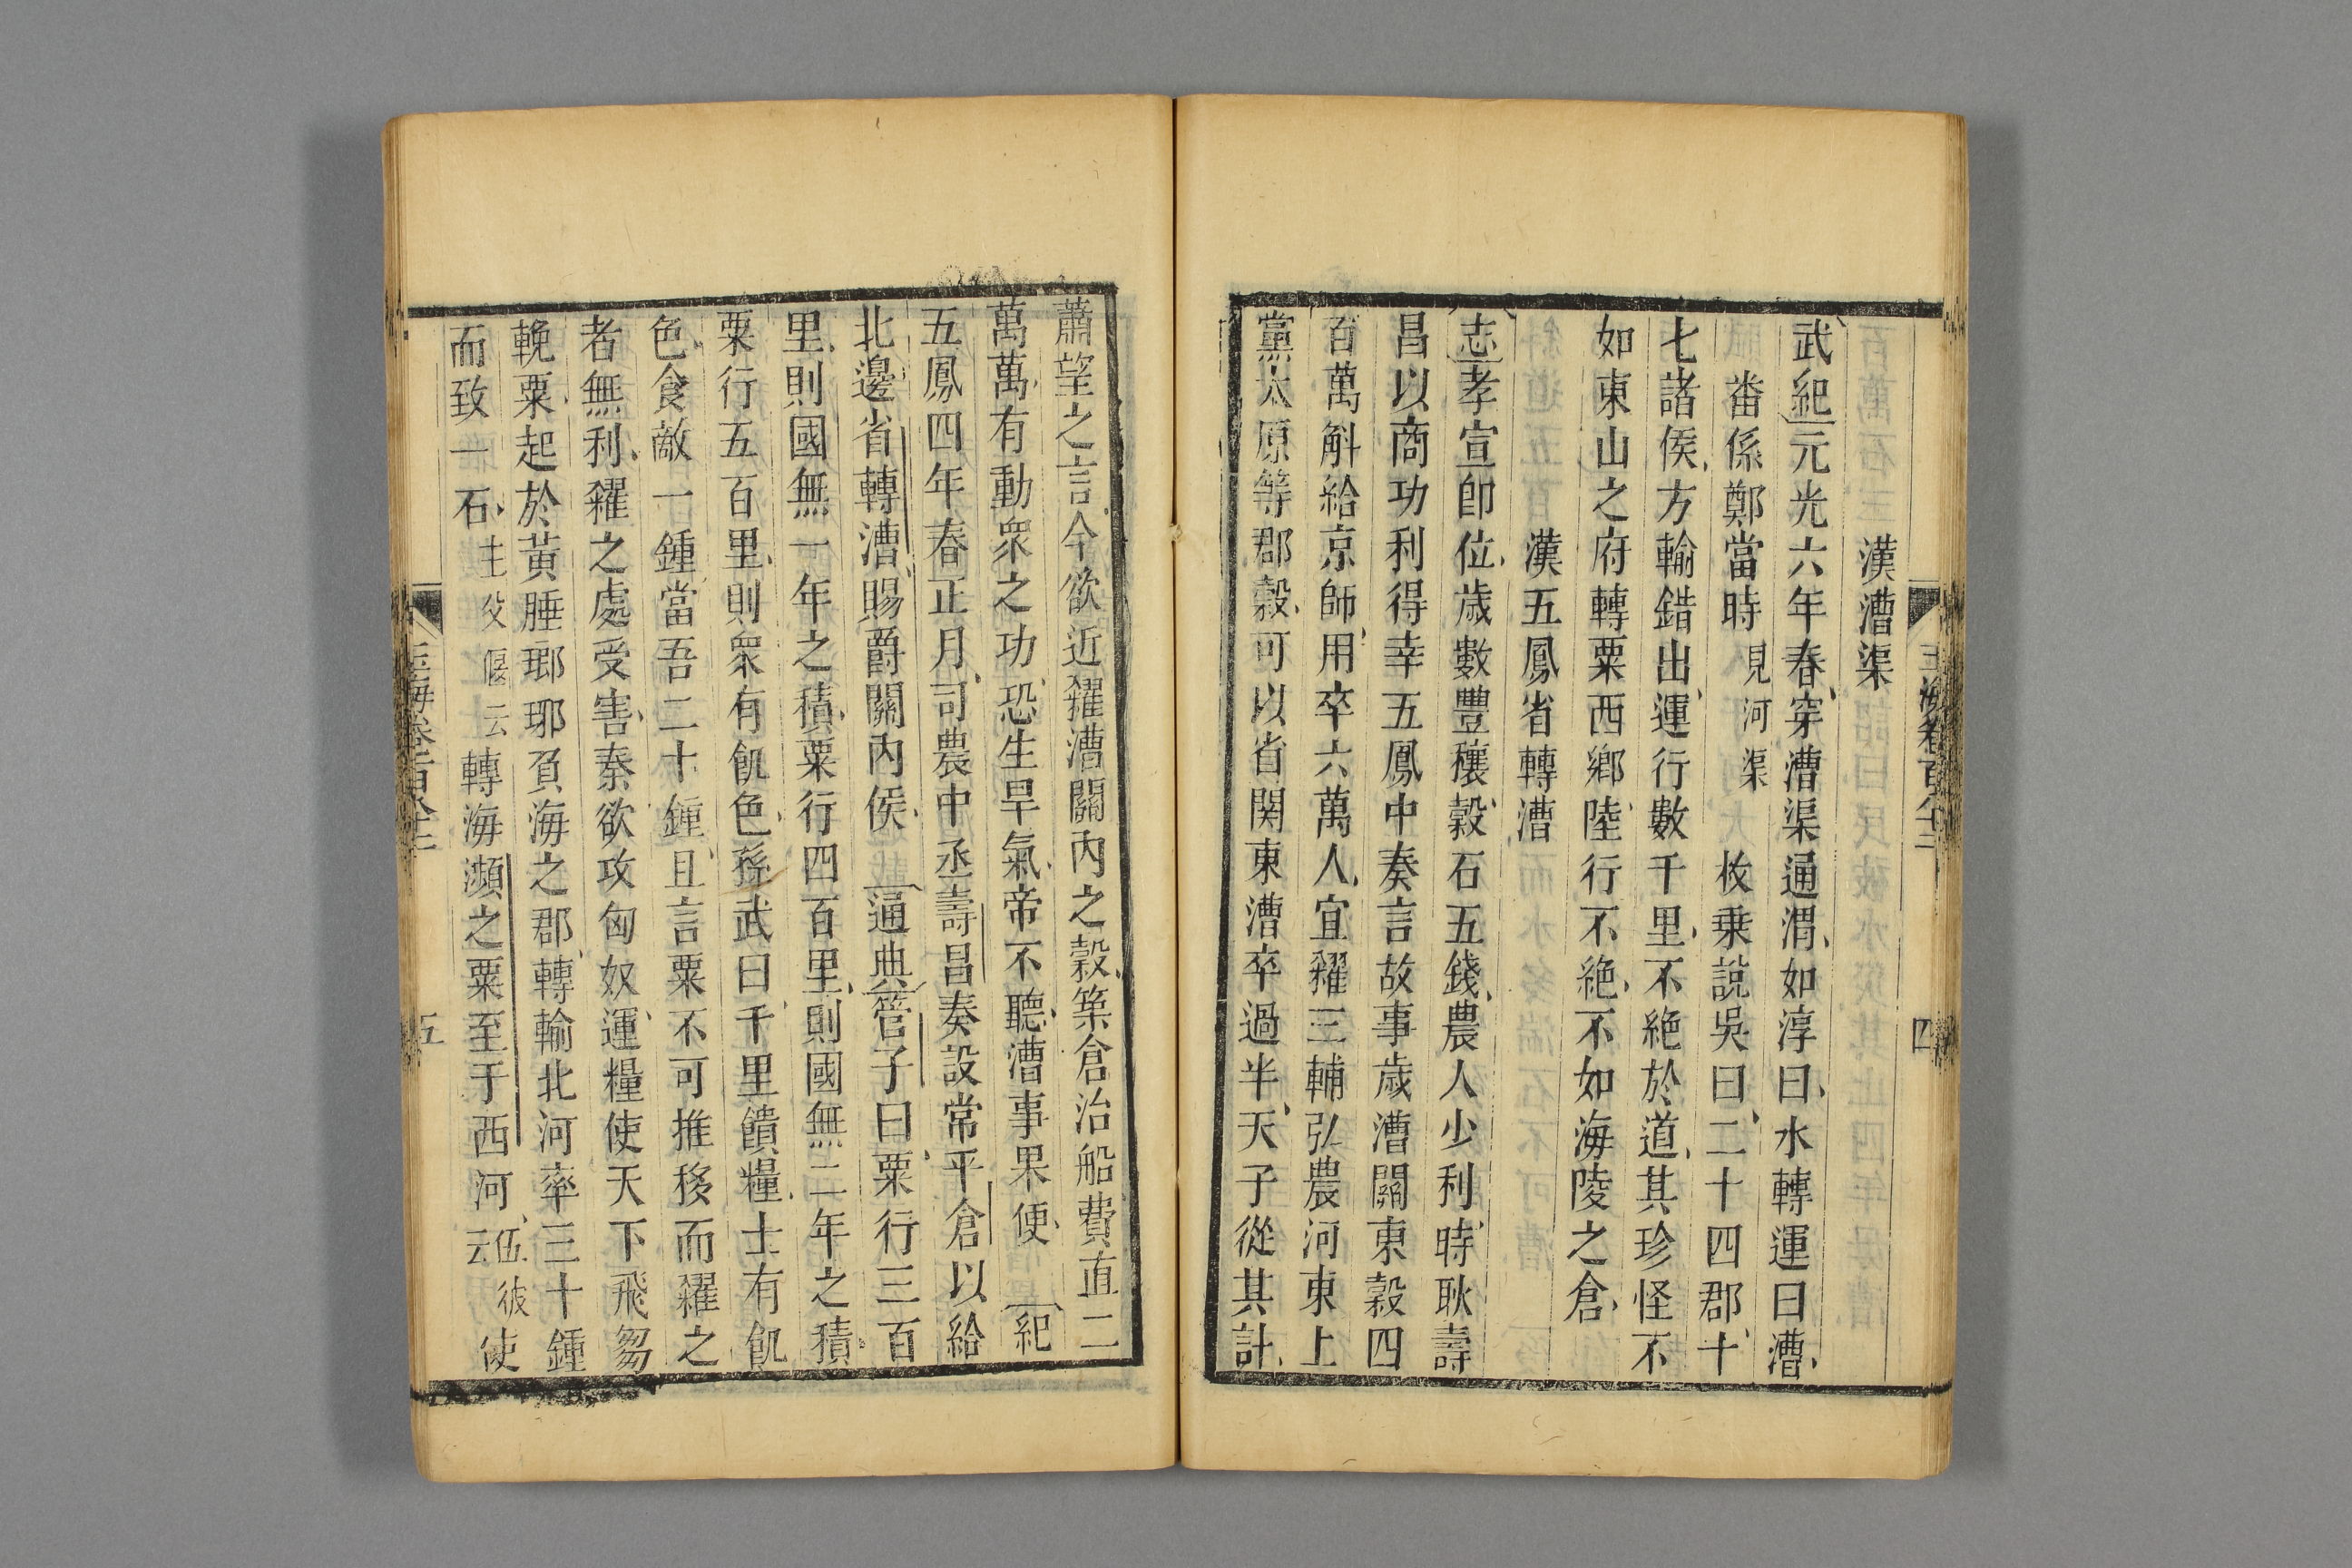 漢漕渠
武紀元光六年春穿漕渠通渭如淳曰水轉運曰漕
番係鄭當時見河渠 枚乗說吳曰二十四郡十
七諸侯方輸錯出運行數千里不絶於道其珍怪不
如東山之府轉粟西郷陸行不絶不如海陵之倉
漢五鳳省轉漕
志孝宣卽位歲數豐穰穀石五錢農人少利時耿壽
昌以商功利得幸五鳳中奏言故事歲漕關東穀四
百萬斛給京師用卒六萬人宜糴三輔弘農河東上
黨太原等郡穀可以省関東漕卒過半天子從其計
玉海卷百八十二
四
蕭望之言今欲近糴漕關內之穀築倉治船費直二
萬萬有動衆之功恐生旱氣帝不聽漕事果便 紀
五鳳四年春正月司農中丞壽昌奏設常平倉以給
北邊省轉漕賜爵關內侯 通典管子曰粟行三百
里則國無一年之積粟行四百里則國無二年之積
粟行五百里則衆有飢色孫武曰千里饋糧士有飢
色食敵一鍾當吾二十鍾且言粟不可推移而糴之
者無利糴之處受害秦欲攻匈奴運糧使天下飛芻
輓粟起於黃腄瑯琊負海之郡轉輸北河率三十鍾
而致一石主父偃云轉海瀕之粟至于西河伍被云使
玉海卷百八十二
五